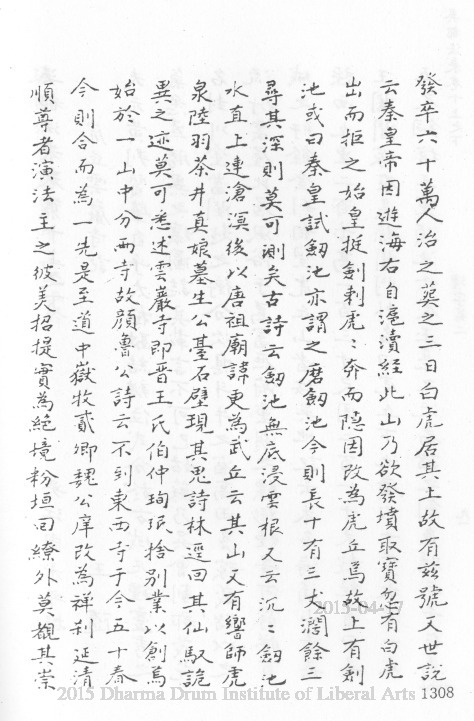 發卒六十萬人治之葬之三日白虎居其上故有茲號又世說
云秦皇帝因遊海右自滬瀆經此山乃欲發墳取寶忽有白虎
出而拒之始皇挺劍刺虎〻奔而隱因改為虎丘焉故上有劍
池或曰秦皇試劔池亦謂之磨劔池今則長十有三丈濶餘三
尋其深則莫可測矣古詩云劔池無底浸雲根又云沉〻劔池
水直上連滄溟後以唐祖廟諱更為武丘云其山又有響師虎
泉陸羽茶井真娘墓生公臺石壁現其鬼詩林逕回其仙馭詭
異之迹莫可悉述雲巖寺即晋王氏伯仲珣珉捨別業以創焉
始於一山中分兩寺故顏魯公詩云不到東西寺于今五十春
今則合而為一先是至道中嶽牧貳卿魏公庠改為禪刹延清
順尊者演法主之彼美招提實為絕境粉垣回繚外莫覩其崇
2015-04-17
2015 Dharma Drum Institute of Liberal Arts
1308